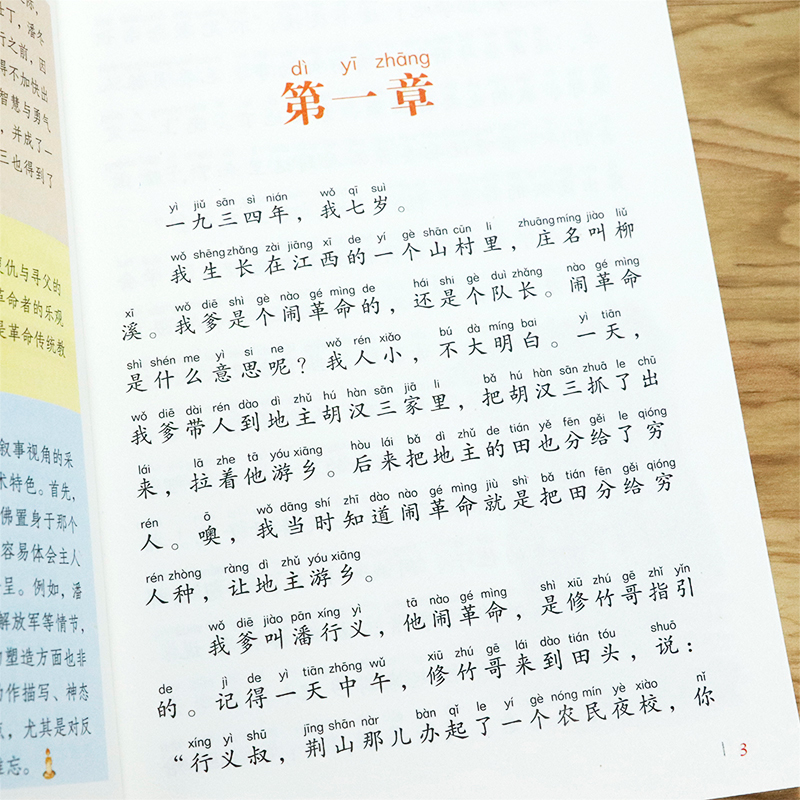 丁，潘冬
行之前，因
得不加快出
智慧与勇气
，并成了一
三也得到了
复仇与寻父的
革命者的乐观
是革命传统教
叙事视角的采
术特色。首先，
佛置身于那个
容易体会主人
呈。例如，潘
解放军等情节，
塑造方面也非
作描写、神态
点，尤其是对反
难忘。
dì yī zhāng
第一章
yì jiǔ sān sì nián wǒ qī suì
一九三四年，我七岁。
wǒ shēng zhǎng zài jiāng xī de yí gè shān cūn li zhuāng míng jiào liǔ
我生长在江西的一个山村里，庄名叫柳
xī wǒ diē shì gè nào gé mìng de hái shi gè duì zhǎng nào gé mìng
溪。我爹是个闹革命的，还是个队长。闹革命
shì shén me yì si ne wǒ rén xiǎo bú dà míng bai yì tiān
是什么意思呢？我人小，不大明白。一天，
wǒ diē dài rén dào dì zhǔ hú hàn sān jiā li bǎ hú hàn sān zhuā le chū
我爹带人到地主胡汉三家里，把胡汉三抓了出
lái lā zhe tā yóu xiāng hòu lái bǎ dì zhǔ de tián yě fēn gěi le qióng
来，拉着他游乡。后来把地主的田也分给了穷
rén ō wǒ dāng shí zhī dào nào gé mìng jiù shì bǎ tián fēn gěi qióng
人。噢，我当时知道闹革命就是把田分给穷
rén zhòng ràng dì zhǔ yóu xiāng
人种，让地主游乡。
wǒ diē jiào pān xíng yì tā nào gé mìng shì xiū zhú gē zhǐ yǐn
我爹叫潘行义，他闹革命，是修竹哥指引
de jì de yì tiān zhōng wǔ xiū zhú gē lái dào tián tóu shuō
的。记得一天中午，修竹哥来到田头，说：
xíng yì shū jīng shān nàr bàn qǐ le yí gè nóng mín yè xiào nǐ
“行义叔，荆山那儿办起了一个农民夜校，你
3